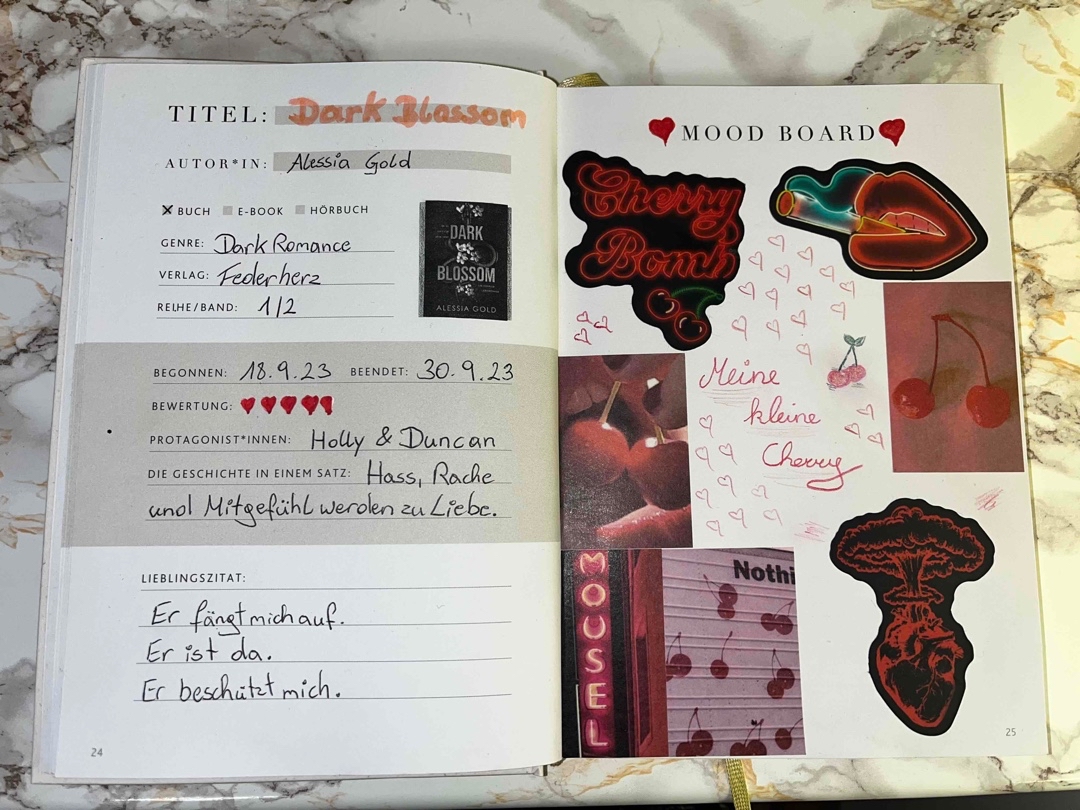 TITEL: Dark Blossom
AUTOR*IN: Alessia Gold
BUCH E-BOOK HÖRBUCH
GENRE: Dark Romance
VERLAG: Federherz
REIHE/BAND: 1/2
DARK
BLOSSOM
ALESSIA GOLD
BEGONNEN: 18.9.23 BEENDET: 30.9.23
BEWERTUNG:
PROTAGONIST*INNEN: Holly & Duncan
DIE GESCHICHTE IN EINEM SATZ: Hass, Rache
und Mitgefühl werden zu Liebe.
LIEBLINGSZITAT:
Er fängt mich auf.
Er ist da.
Er beschützt mich.
24
MOOD BOARD
Cherry
Bomb
Meine
kleine
Cherry
MOUSEL
Nothi
25